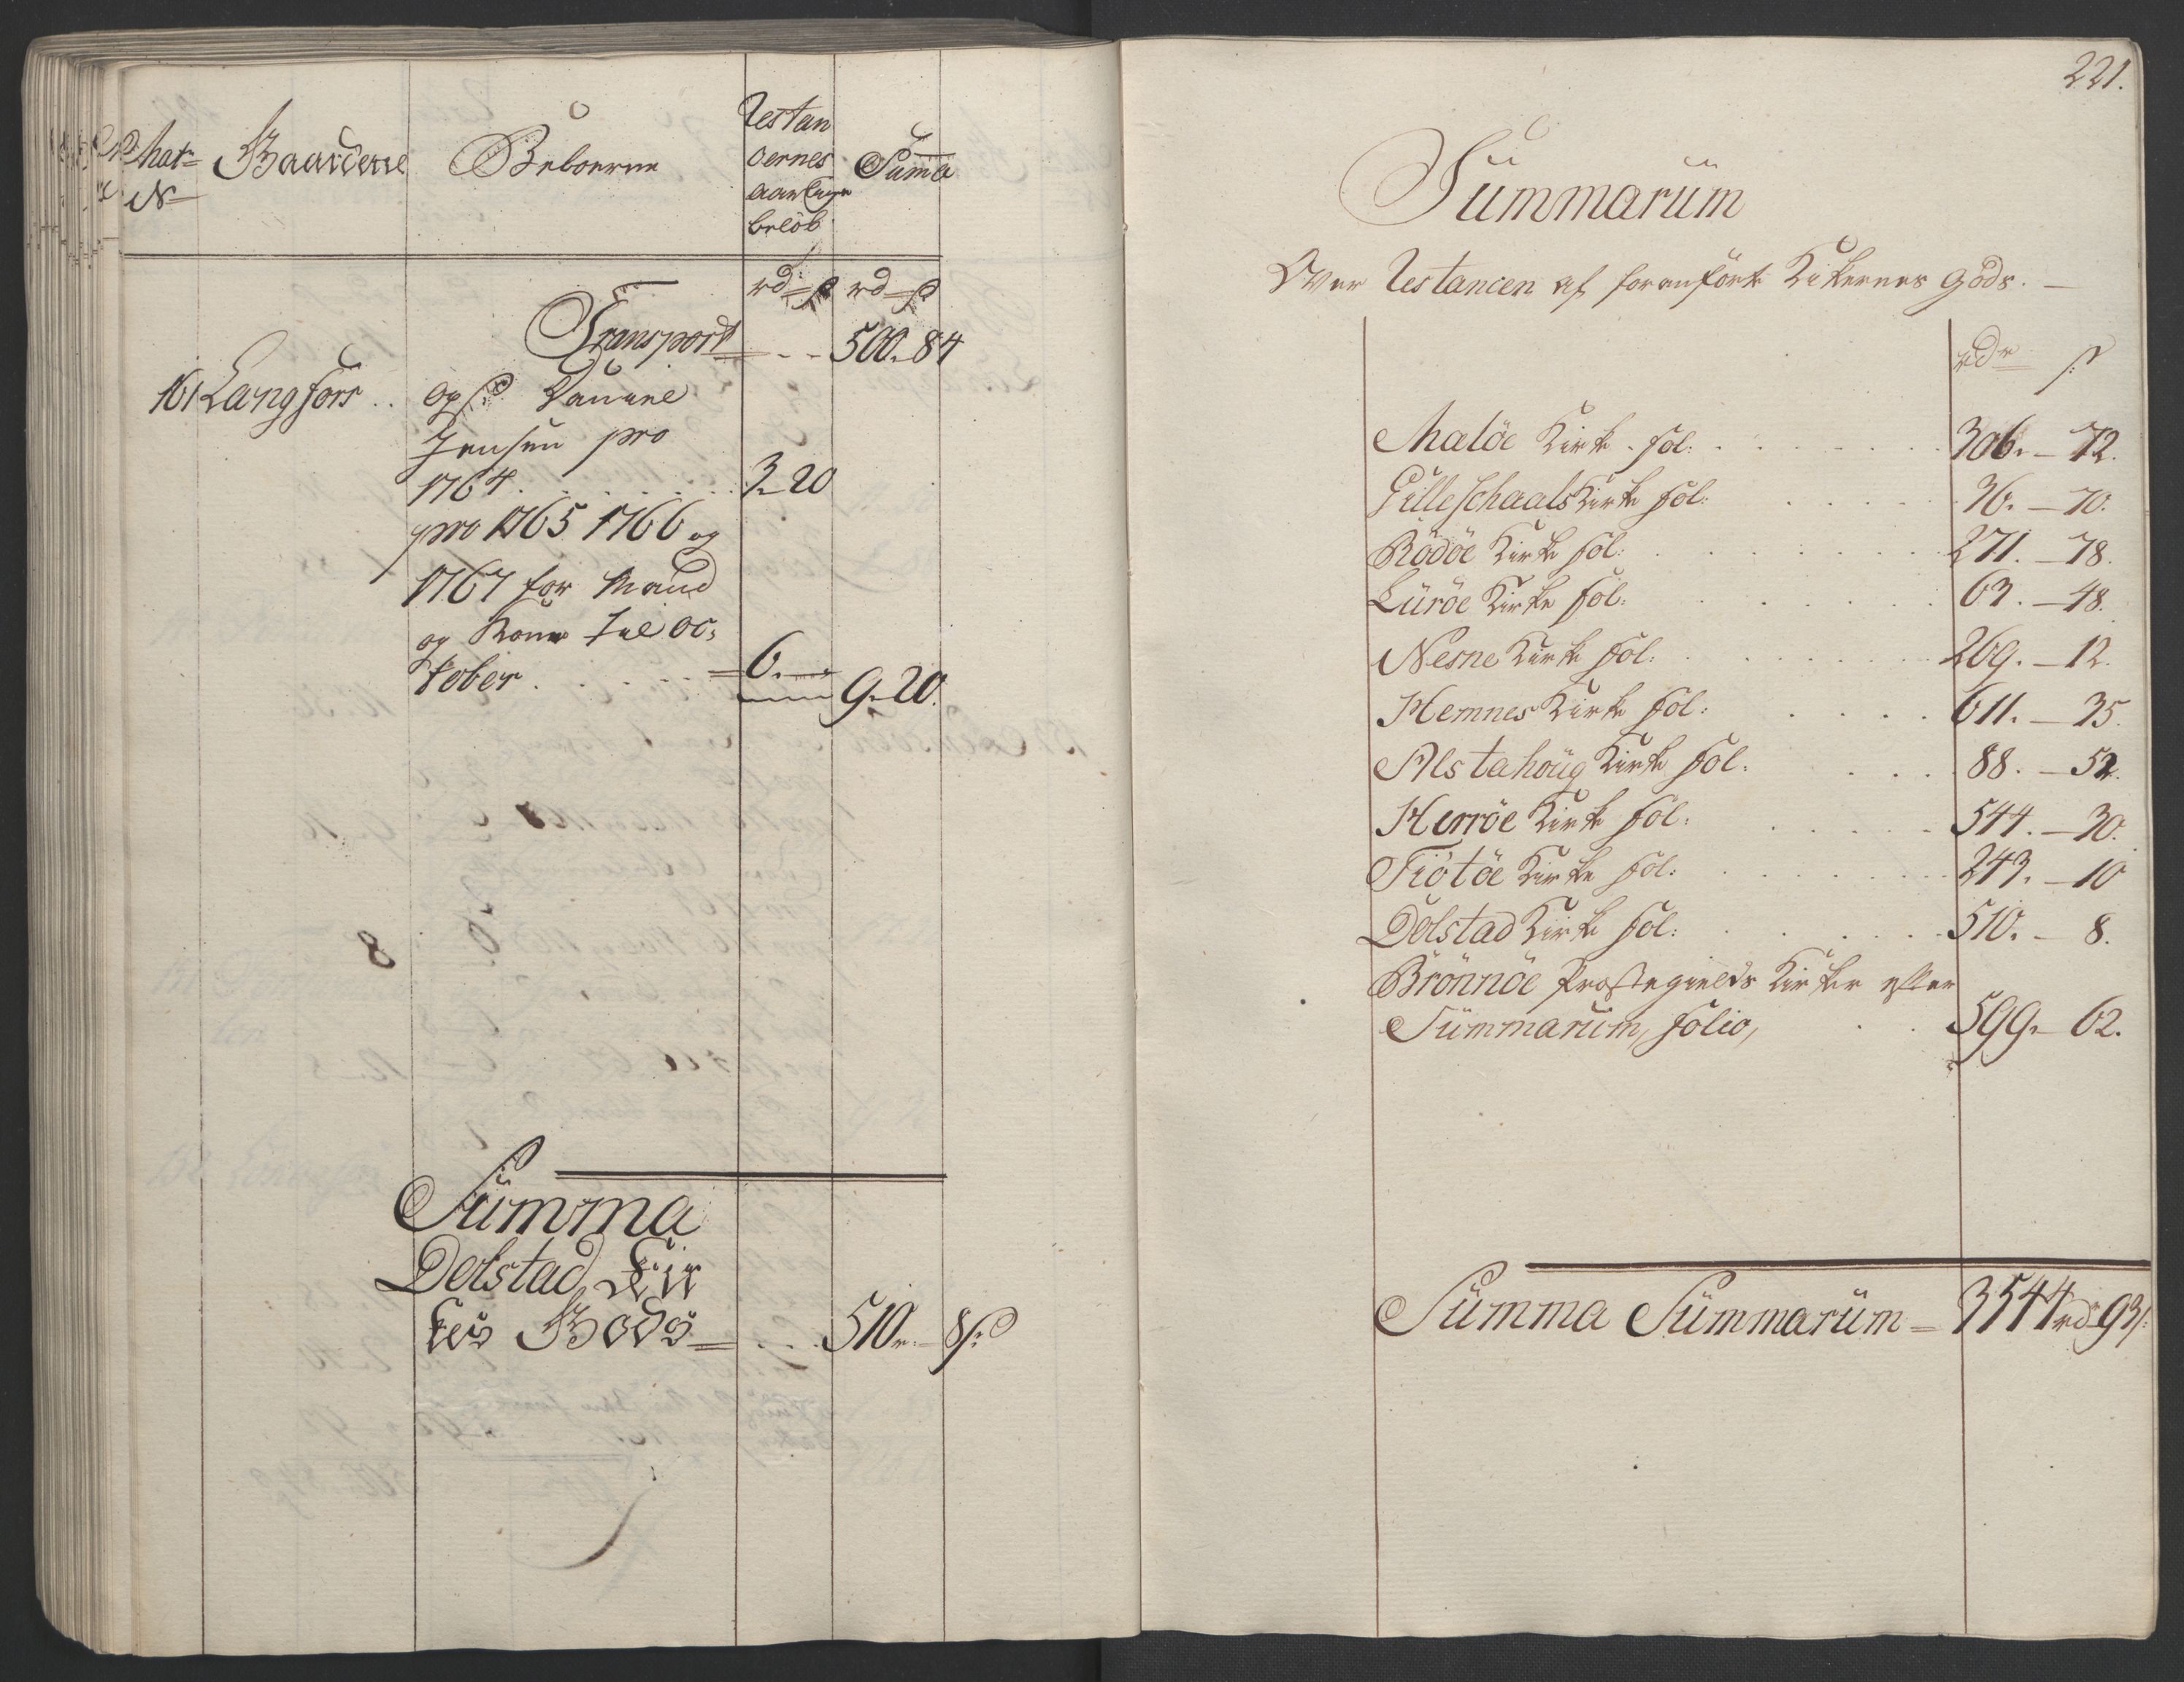 Mat=
N
Gaardene
Beboerne
Restan
cernes
aarlige
beløb
Suma
rd = ß rd = ß
Transport = . . 500. 84
161 Langfors . . og
Jensen pro
1764 . . . . . . . 3. 20
pro 1765 1766 og
1767 for Mand
og Kone til oc=
tober . . . . . . = 6. —
9. 20.
8
Summa
Dolstad Kir
kes Gods = . . . 510. 8 ß
221.
Summarum
Over Restancen af foranførte Kirkernes Gods. —
rdr ß
Meløe Kirke . fol: . . . . . . . 306. – 72.
Gilleschaals Kirke fol: . . . . 36. – 70.
Rödöe Kirke fol: . . . . . . . 271. – 78.
Luröe Kirke fol: . . . . . . 63. – 48.
Nesne Kirke fol: . . . . . . . 269. – 12.
Hemnes Kirke fol: . . . . 611. – 35.
Alstahoug Kirke fol: . . . 88. – 52.
Herröe Kirke fol: . . . . . 544. – 30.
Tiötöe Kirke fol: . . . . . . . 243. – 10
Dolstad Kirke fol: . . . . . . 510. – 8.
Brönnöe Præstegields Kirker efter
Summarum, folio, . . 599. – 62.
Summa Summarum = 3544 rdr 93 ß: